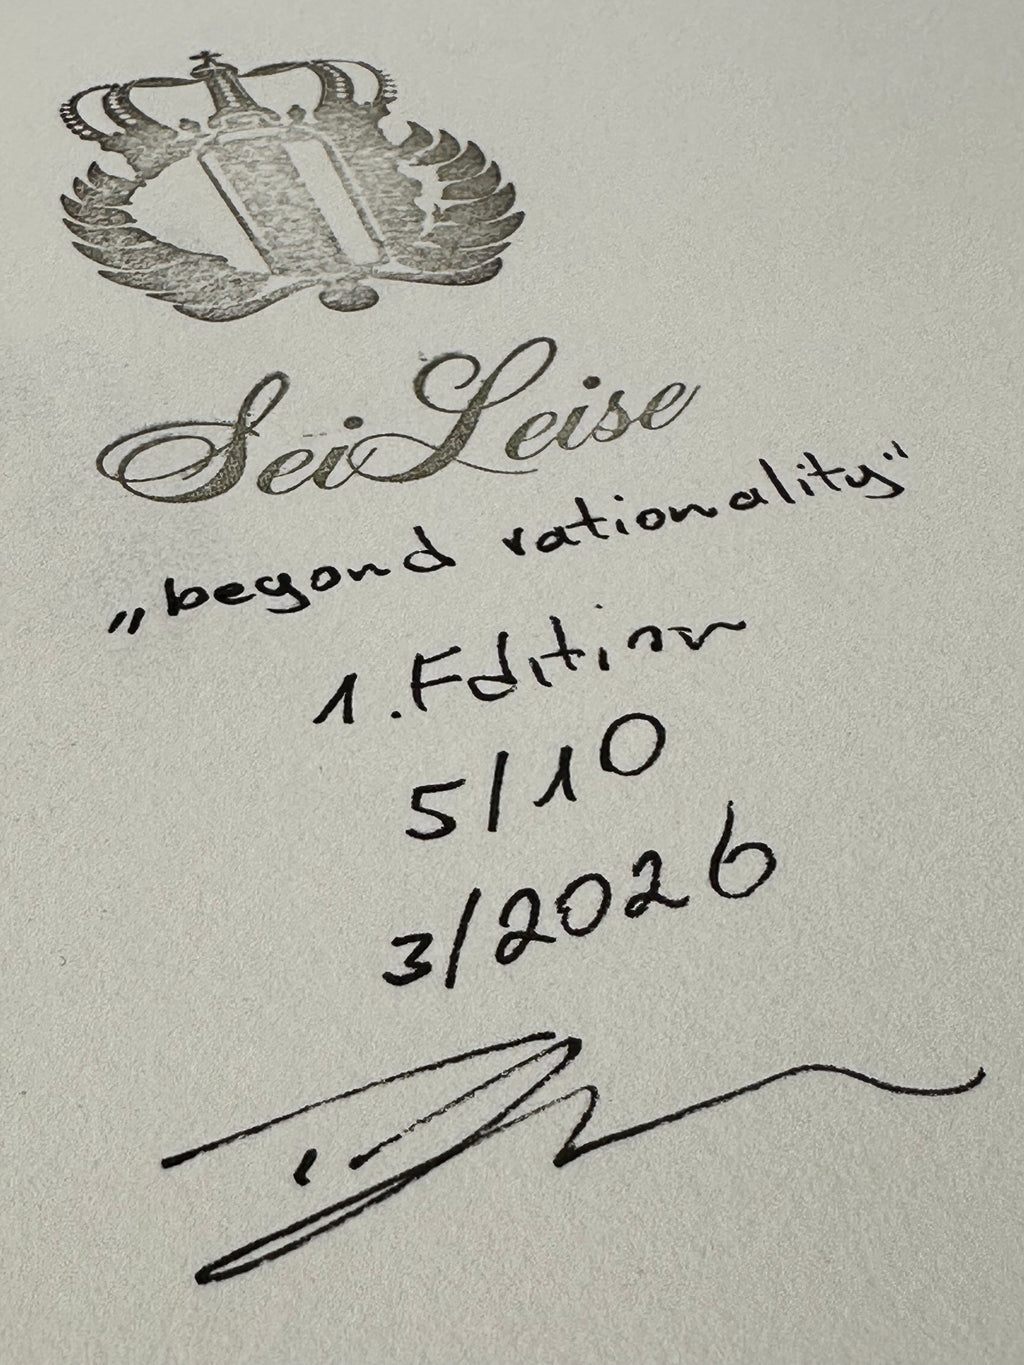 SeiLeise
„beyond rationality"
1. Edition
5/10
3/2026